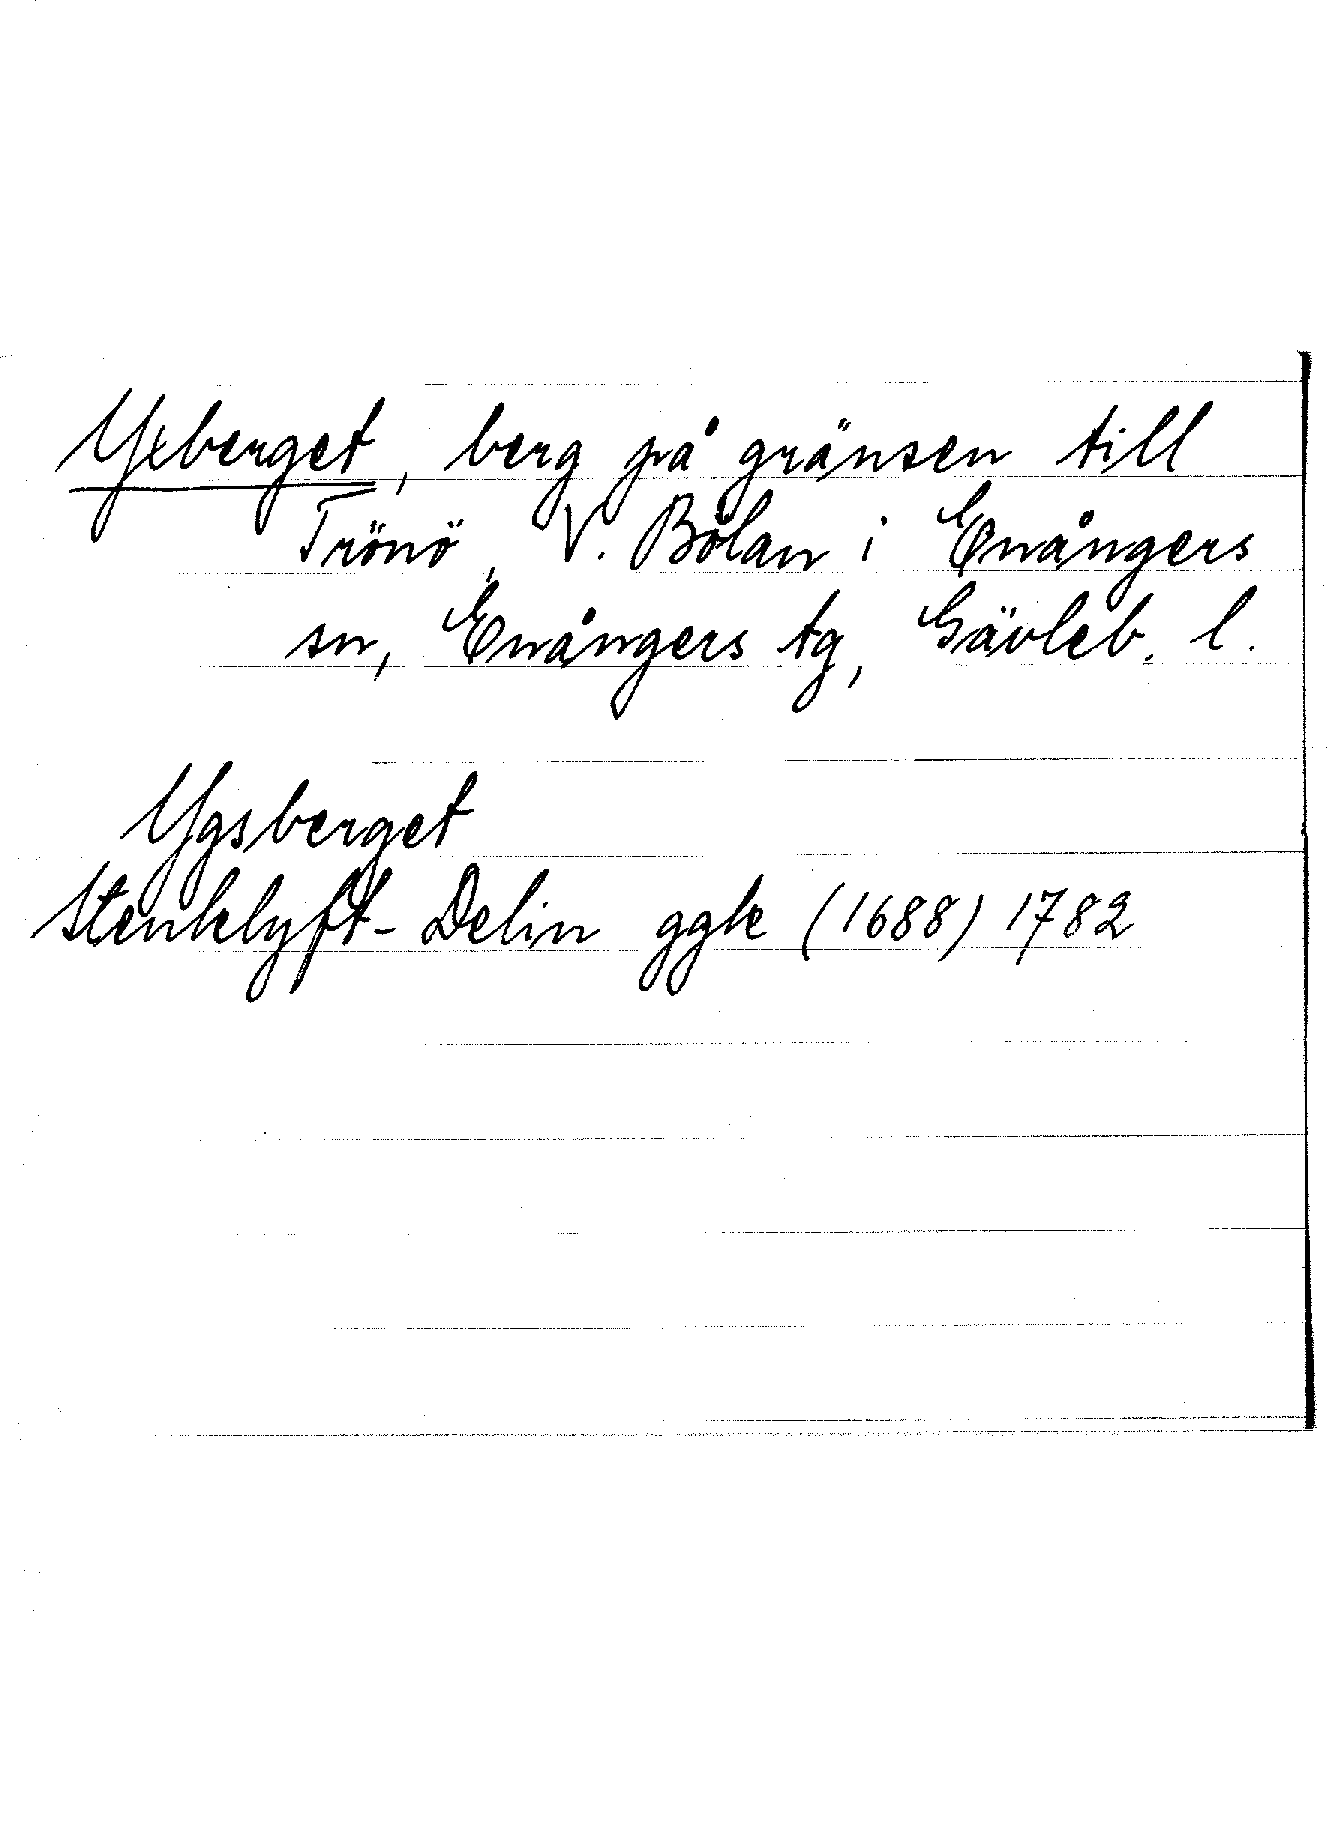 Yxberget, berg på gränsen till
Trönö, V. Bölan i Enångers
sn, Enångers tg, Gävleb. l.
Ygsberget
Stenklyft- Delin ggk (1688) 1782